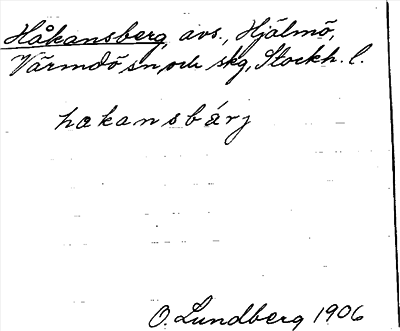 Håkansberg, avs., Hjälmö,
Värmdö sn, och skg, Stockh. l.
hakansbärj
O. Lundberg 1906